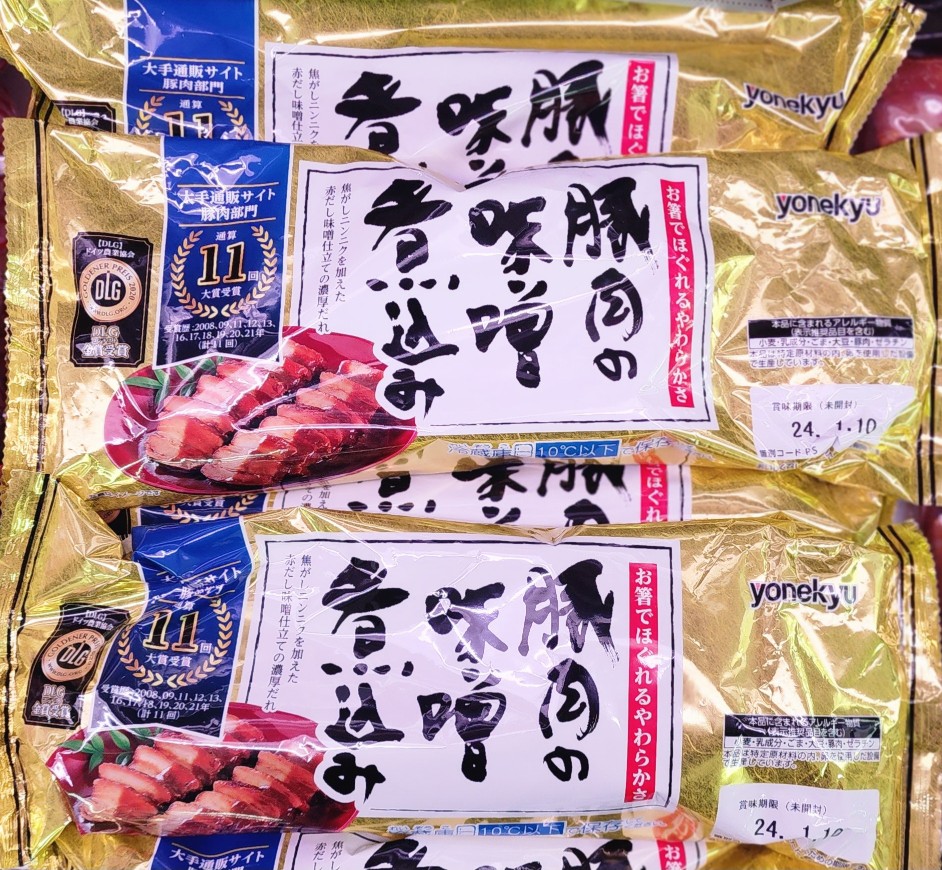 大手通販サイト
豚肉部門
通算
11
焦がしニンニクを
赤だし味噌仕立
煮
味
豚
お箸でほぐ
yonekyu
【DLG】
ドイツ農業協会
GOLDENER PREIS 2020
DLG
DLG
金賞受賞
大手通販サイト
豚肉部門
通算
11回
大賞受賞
受賞歴:2008,09,11,12,13,
16,17,18,19,20,21年
(計11回)
お箸でほぐれるやわらかさ
豚肉の
味噌
煮込み
焦がしニンニクを加えた
赤だし味噌仕立ての濃厚だれ
yonekyu
本品に含まれるアレルギー物質
(表示推奨品目を含む)
小麦・乳成分・ごま・大豆・豚肉・ゼラチン
賞味期限(未開封)
24. 1.10
冷蔵庫 10℃以下で保存
大賞受賞
ほぐれ
【DLG】
DLG
金賞受賞
サイト
11回
大賞受賞
2008,09,11,12,13,
16,17,18,19,20,21年
(計11回)
お箸でほぐれるやわらかさ
豚肉の
味噌
煮込み
赤だし味噌仕立ての濃厚だれ
yonekyu
本品に含まれるアレルギー物質
(表示推奨品目を含む)
小麦・乳成分・ごま・大豆・豚肉・ゼラチン
賞味期限(未開封)
24. 1.10
10℃以下
大手通販サイト